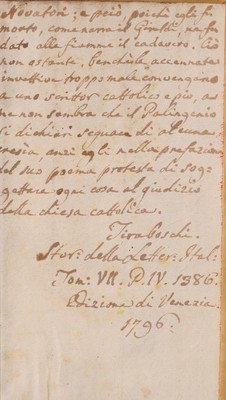 Novatori; e perciò, poichè egli fu
morto, come narra il Giraldi, ne fu
dato alle fiamme il cadavero. Ciò
non ostante, benchè le accennate
invettive troppo male convengano
a uno scrittor cattolico e pio, a
me non sembra che il Palingenio
si dichiari seguace di alcuna
eresia, anzi egli nella prefazione
del suo poema protesta di sog-
gettare ogni cosa al giudizio
della chiesa cattolica.
Tiraboschi.
Stor: della Letter: Ital:
Tom: VII. P. IV. 1386.
Edizione di Venezia.
1796.